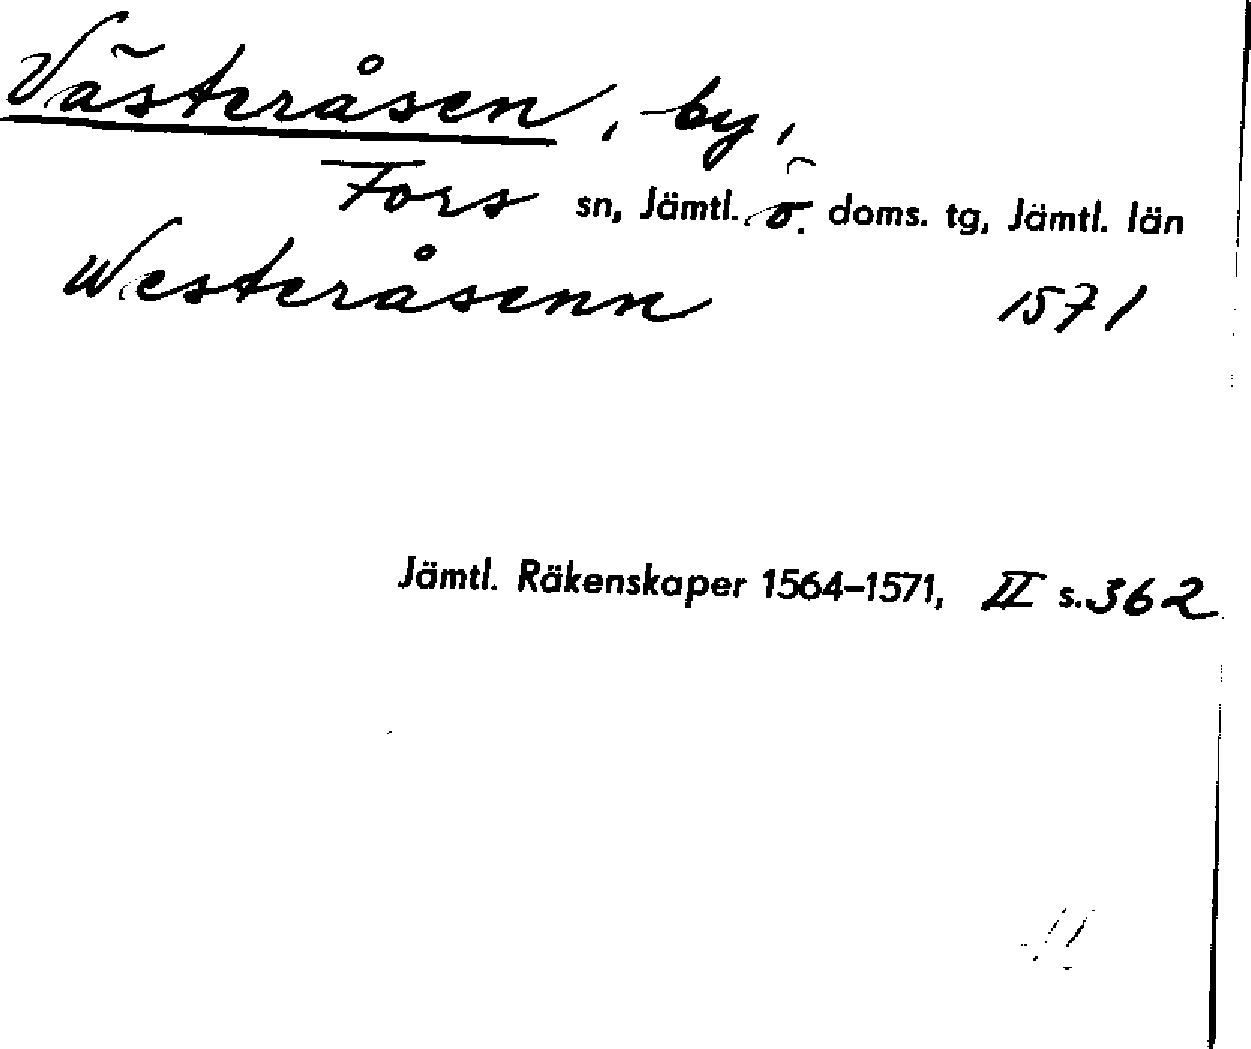 Västeråsen, by,
Fors sn, Jämtl. ö. doms. tg, Jämtl. län
Westeråsenn 1571
Jämtl. Räkenskaper 1564–1571, II s. 362